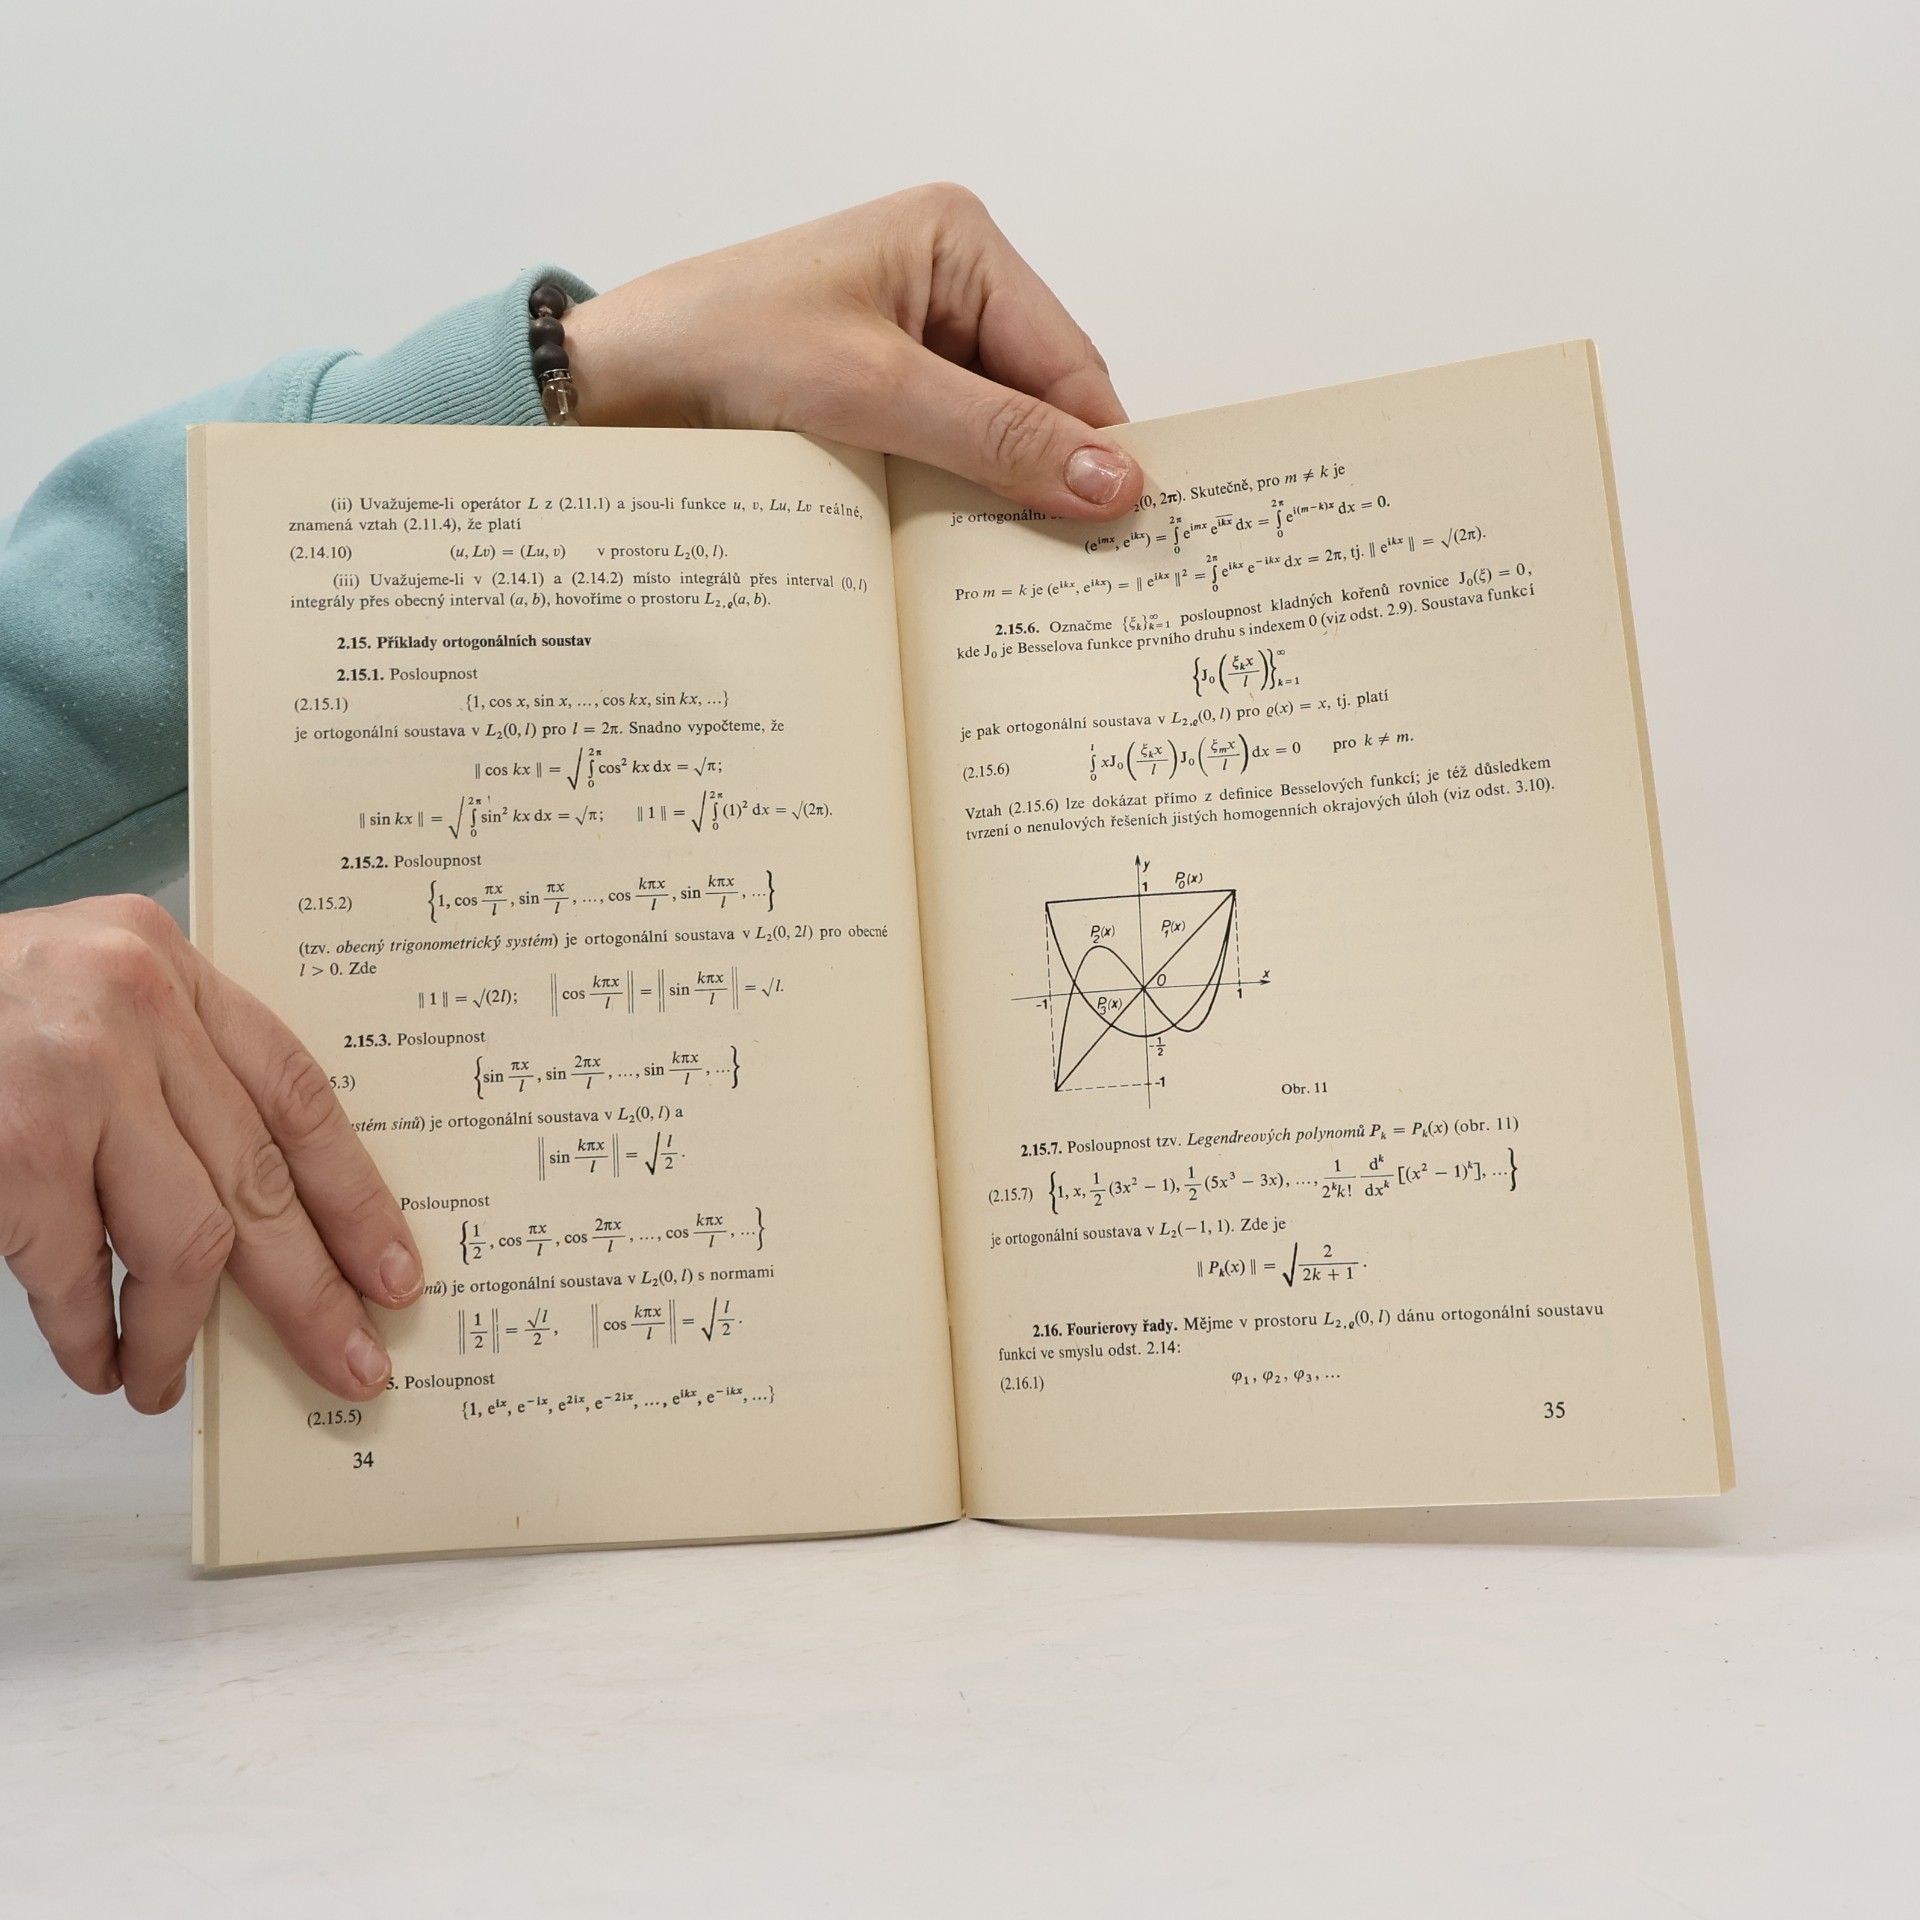 (ii) Uvažujeme-li operátor L z (2.11.1) a jsou-li funkce u, v, Lu, Lv reálné,
znamená vztah (2.11.4), že platí
(2.14.10) (u, Lv) = (Lu, v) v prostoru L₂(0, l).
(iii) Uvažujeme-li v (2.14.1) a (2.14.2) místo integrálů přes interval (0, l)
integrály přes obecný interval (a, b), hovoříme o prostoru L₂,ϱ(a, b).
2.15. Příklady ortogonálních soustav
2.15.1. Posloupnost
(2.15.1) {1, cos x, sin x, ..., cos kx, sin kx, ...}
je ortogonální soustava v L₂(0, l) pro l = 2π. Snadno vypočteme, že
‖ cos kx ‖ = √∫₀^{2π} cos² kx dx = √π;
‖ sin kx ‖ = √∫₀^{2π} sin² kx dx = √π; ‖ 1 ‖ = √∫₀^{2π} (1)² dx = √(2π).
2.15.2. Posloupnost
(2.15.2) {1, cos πx/l, sin πx/l, ..., cos kπx/l, sin kπx/l, ...}
(tzv. obecný trigonometrický systém) je ortogonální soustava v L₂(0, 2l) pro obecné
l > 0. Zde
‖ 1 ‖ = √(2l); ‖ cos kπx/l ‖ = ‖ sin kπx/l ‖ = √l.
2.15.3. Posloupnost
5.3) {sin πx/l, sin 2πx/l, ..., sin kπx/l, ...}
stém sinů) je ortogonální soustava v L₂(0, l) a
‖ sin kπx/l ‖ = √(l/2).
Posloupnost
{1/2, cos πx/l, cos 2πx/l, ..., cos kπx/l, ...}
nů) je ortogonální soustava v L₂(0, l) s normami
‖ 1/2 ‖ = √l/2, ‖ cos kπx/l ‖ = √(l/2).
5. Posloupnost
(2.15.5) {1, e^{ix}, e^{−ix}, e^{2ix}, e^{−2ix}, ..., e^{ikx}, e^{−ikx}, ...}
34
je ortogonáln ₂(0, 2π). Skutečně, pro m ≠ k je
(e^{imx}, e^{ikx}) = ∫₀^{2π} e^{imx} \overline{e^{ikx}} dx = ∫₀^{2π} e^{i(m−k)x} dx = 0.
Pro m = k je (e^{ikx}, e^{ikx}) = ‖ e^{ikx} ‖² = ∫₀^{2π} e^{ikx} e^{−ikx} dx = 2π, tj. ‖ e^{ikx} ‖ = √(2π).
2.15.6. Označme {ξₖ}_{k=1}^∞ posloupnost kladných kořenů rovnice J₀(ξ) = 0,
kde J₀ je Besselova funkce prvního druhu s indexem 0 (viz odst. 2.9). Soustava funkcí
{J₀(ξₖx/l)}_{k=1}^∞
je pak ortogonální soustava v L₂,ϱ(0, l) pro ϱ(x) = x, tj. platí
(2.15.6) ∫₀^l xJ₀(ξₖx/l) J₀(ξₘx/l) dx = 0 pro k ≠ m.
Vztah (2.15.6) lze dokázat přímo z definice Besselových funkcí; je též důsledkem
tvrzení o nenulových řešeních jistých homogenních okrajových úloh (viz odst. 3.10).
y
1 P₀(x)
P₂(x) P₁(x)
0 x
-1 P₃(x) 1
-1/2
-1
Obr. 11
2.15.7. Posloupnost tzv. Legendreových polynomů Pₖ = Pₖ(x) (obr. 11)
(2.15.7) {1, x, 1/2 (3x² − 1), 1/2 (5x³ − 3x), ..., 1/(2ᵏk!) dᵏ/dxᵏ [(x² − 1)ᵏ], ...}
je ortogonální soustava v L₂(−1, 1). Zde je
‖ Pₖ(x) ‖ = √(2/(2k + 1)).
2.16. Fourierovy řady. Mějme v prostoru L₂,ϱ(0, l) dánu ortogonální soustavu
funkcí ve smyslu odst. 2.14:
(2.16.1) φ₁, φ₂, φ₃, ...
35